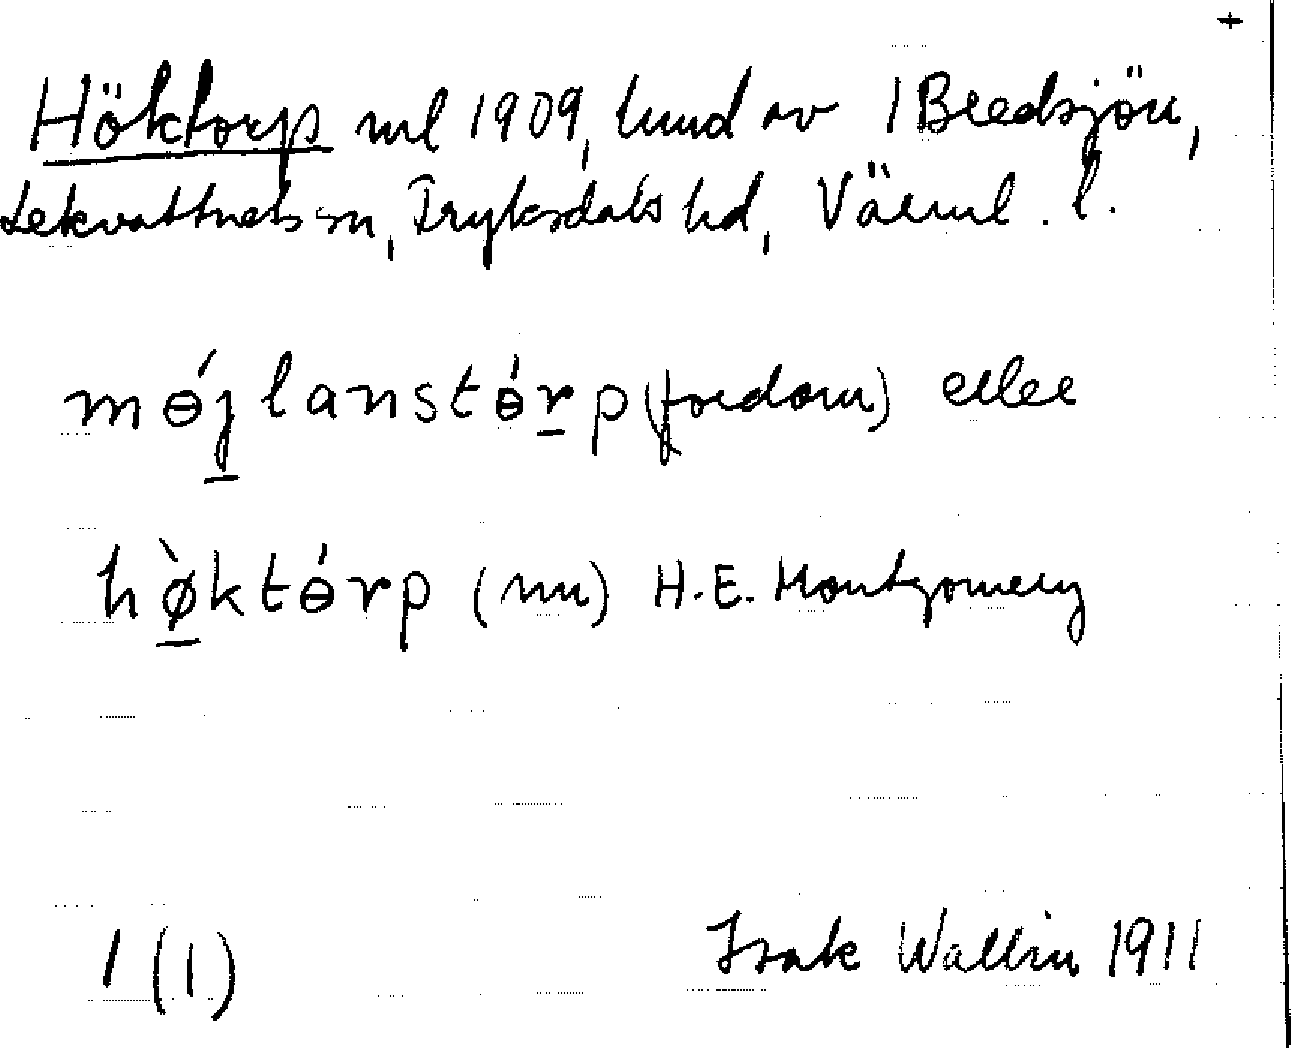 +
Höktorp nul 1909, lund av 1 Bredsjön,
Lekvattnets sn, Fryksdals hd, Värml. l.
mɵ́jlanstɵ́rp (fordom) eller
hø̀ktɵ́rp (nu) H.E. Montgomery
1 (1) Isak Wallin 1911